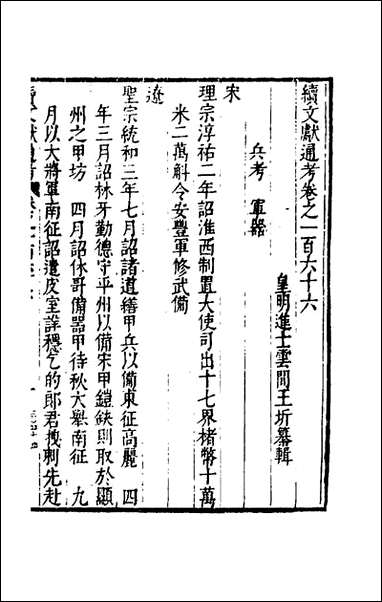 續文獻通考卷之一百六十六
皇明進士雲間王圻纂輯
兵考 軍器
宋
理宗淳祐二年詔淮西制置大使司可出十七界楮幣十萬
米二萬斛令安豐軍修武備
遼
聖宗統和三年七月詔諸道繕甲兵以備東征高麗 四
年三月詔林牙勤德守平州以備宋甲鎧缺則取於顯
州之甲坊 四月詔休哥備器甲待秋大舉南征 九
月以大將軍南征詔遣皮室詳穩乞的郎君拽剌先赴